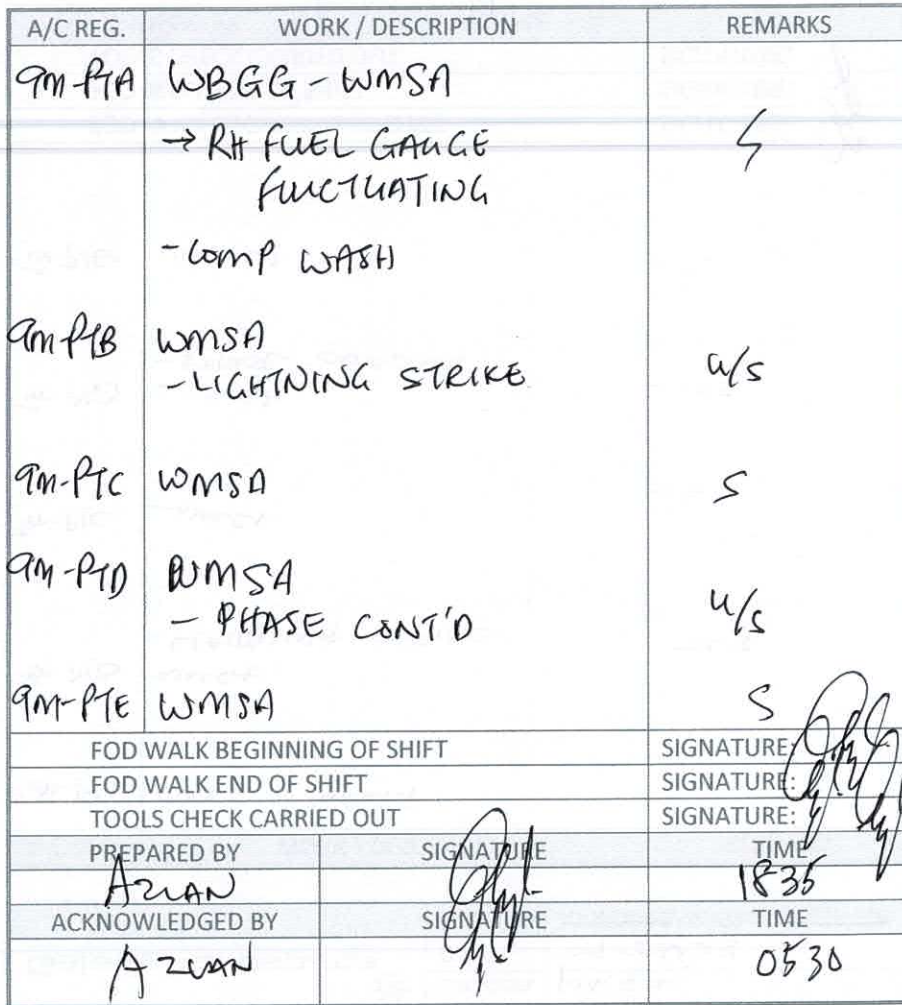 A/C REG. WORK / DESCRIPTION REMARKS
9M-PTA WBGG - WMSA
→ RH FUEL GAUGE S
FLUCTUATING
- COMP WASH
9M-PTB WMSA
- LIGHTNING STRIKE U/S
9M-PTC WMSA S
9M-PTD WMSA
- PHASE CONT'D U/S
9M-PTE WMSA S
FOD WALK BEGINNING OF SHIFT SIGNATURE:
FOD WALK END OF SHIFT SIGNATURE:
TOOLS CHECK CARRIED OUT SIGNATURE:
PREPARED BY SIGNATURE TIME
AZLAN 1835
ACKNOWLEDGED BY SIGNATURE TIME
AZLAN 0530